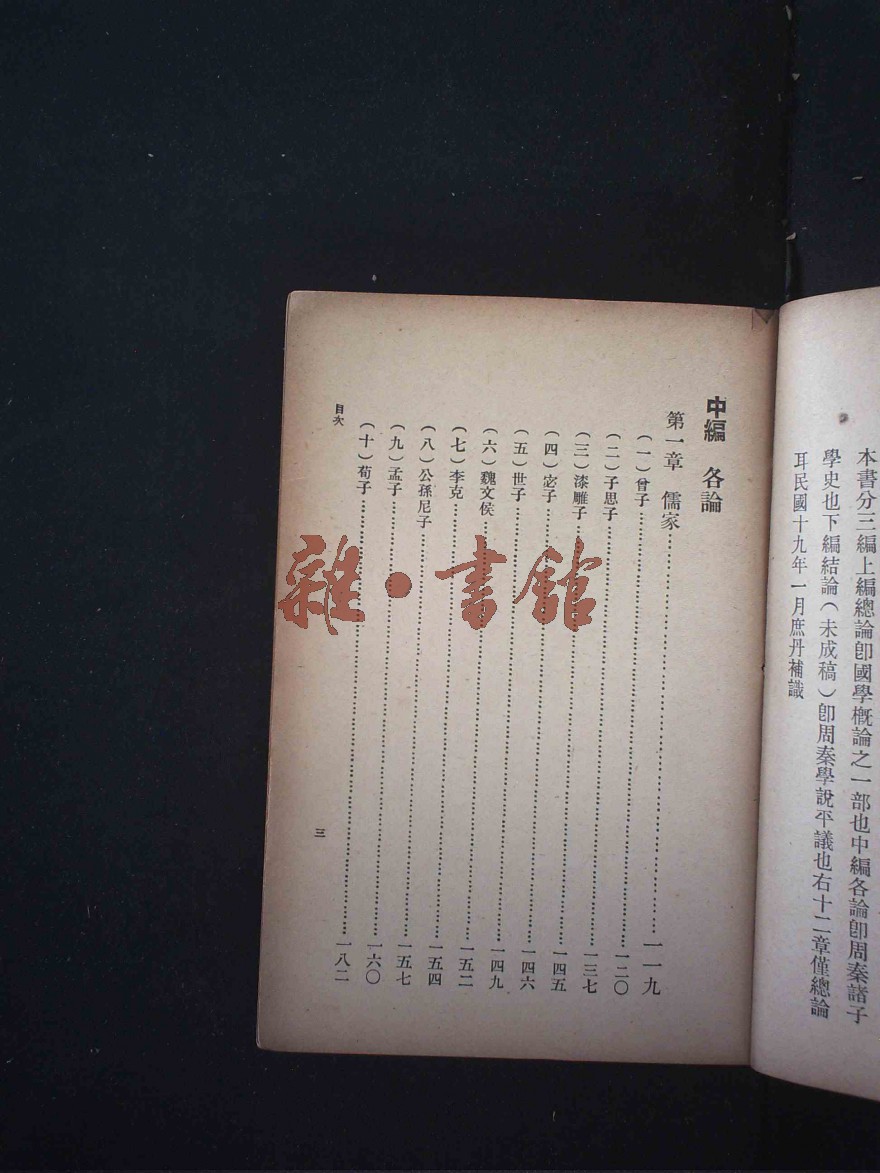 本書分三編上編總論卽國學槪論之一部也中編各論卽周秦諸子
學史也下編結論(未成稿)卽周秦學說平議也右十二章僅總論
耳民國十九年一月庶丹補識
中編 各論
第一章 儒家……一一九
(一)曾子……一二〇
(二)子思子……一三七
(三)漆雕子……一四五
(四)宓子……一四六
(五)世子……一四九
(六)魏文侯……一五二
(七)李克……一五四
(八)公孫尼子……一五七
(九)孟子……一六〇
(十)荀子……一八二
目次
三
雜·書館